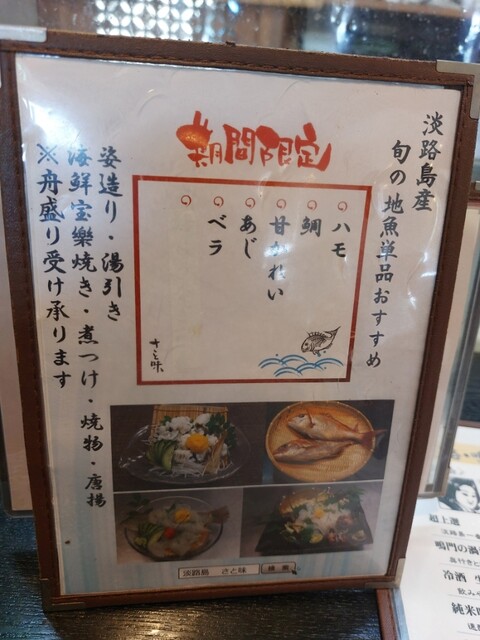 期間限定
淡路島産
旬の地魚単品おすすめ
ハモ
鯛
甘かれい
あじ
ベラ
さと味
姿造り・湯引き
海鮮宝樂焼き・煮つけ・焼物・唐揚
※舟盛り受け承ります
淡路島 さと味
検索
超上選
鳴門の渦
冷酒
純米